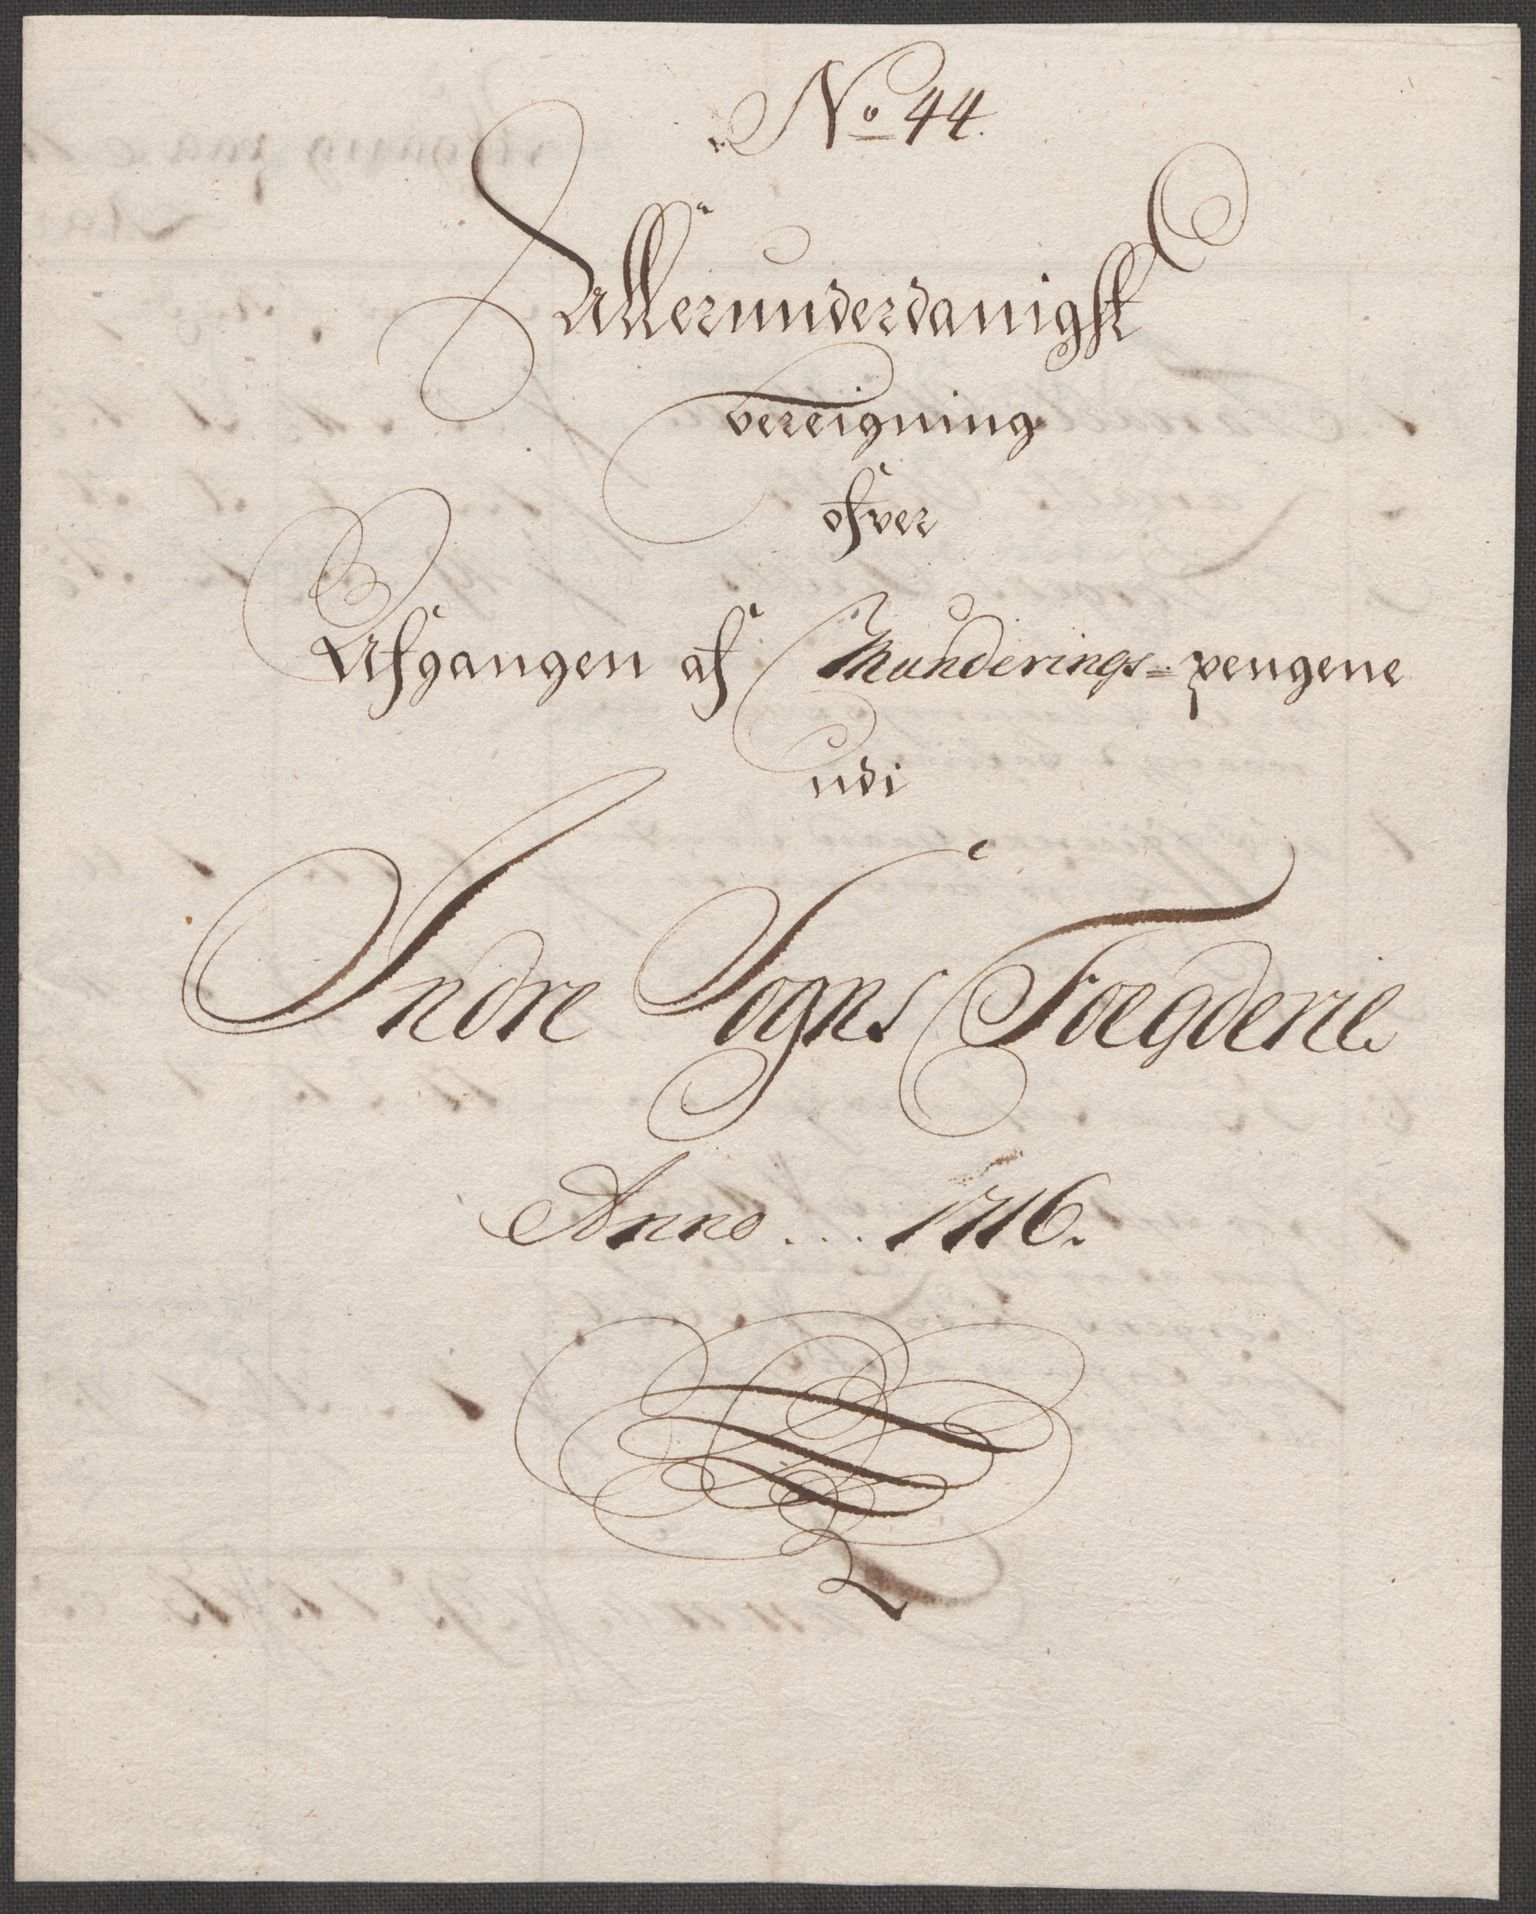 No 44.
Allerunderdanigst
bereigning
ofver
Afgangen af Munderings=pengene
udi
Indre Sogns Foegderie.
Anno ... 1716.